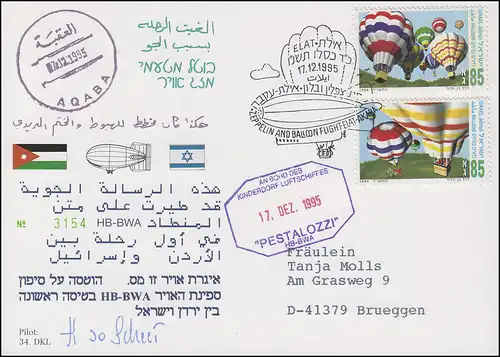 العقبة
07.12.1995
AQABA
ألغيت الرحلة
بسبب الجو
בוטל מטעמי
מזג אוויר
ELAT-אילת
כ"ד בכסלו תשנ"ו
17.12.1995
ZEPPELIN AND BALLOON FLIGHT ELAT-AKABA
ISRAEL
85
ISRAEL
85
هكذا كان مخطط للهبوط والختم البريدي
AN BORD DES
KINDERDORF LUFTSCHIFFES
17. DEZ. 1995
"PESTALOZZI"
HB-BWA
هذه الرسالة الجوية
قد طيرت على متن
№ 3154 HB-BWA المنطاد
في أول رحلة بين
الأردن وإسرائيل
איגרת אויר זו מס. הוטסה על סיפון
ספינת האויר HB-BWA בטיסה ראשונה
בין ירדן וישראל
Fräulein
Tanja Molls
Am Grasweg 9
D-41379 Brueggen
Pilot:
34. DKL